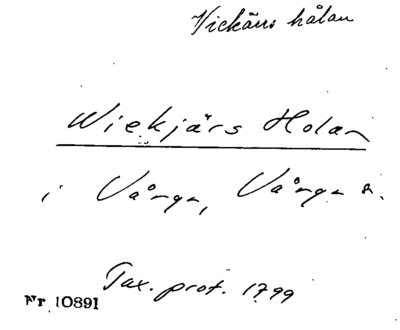 Vickärs hålan
Wiekjärs Holan
i Vånga, Vånga s.
Tax. prot. 1799
Nr 10891